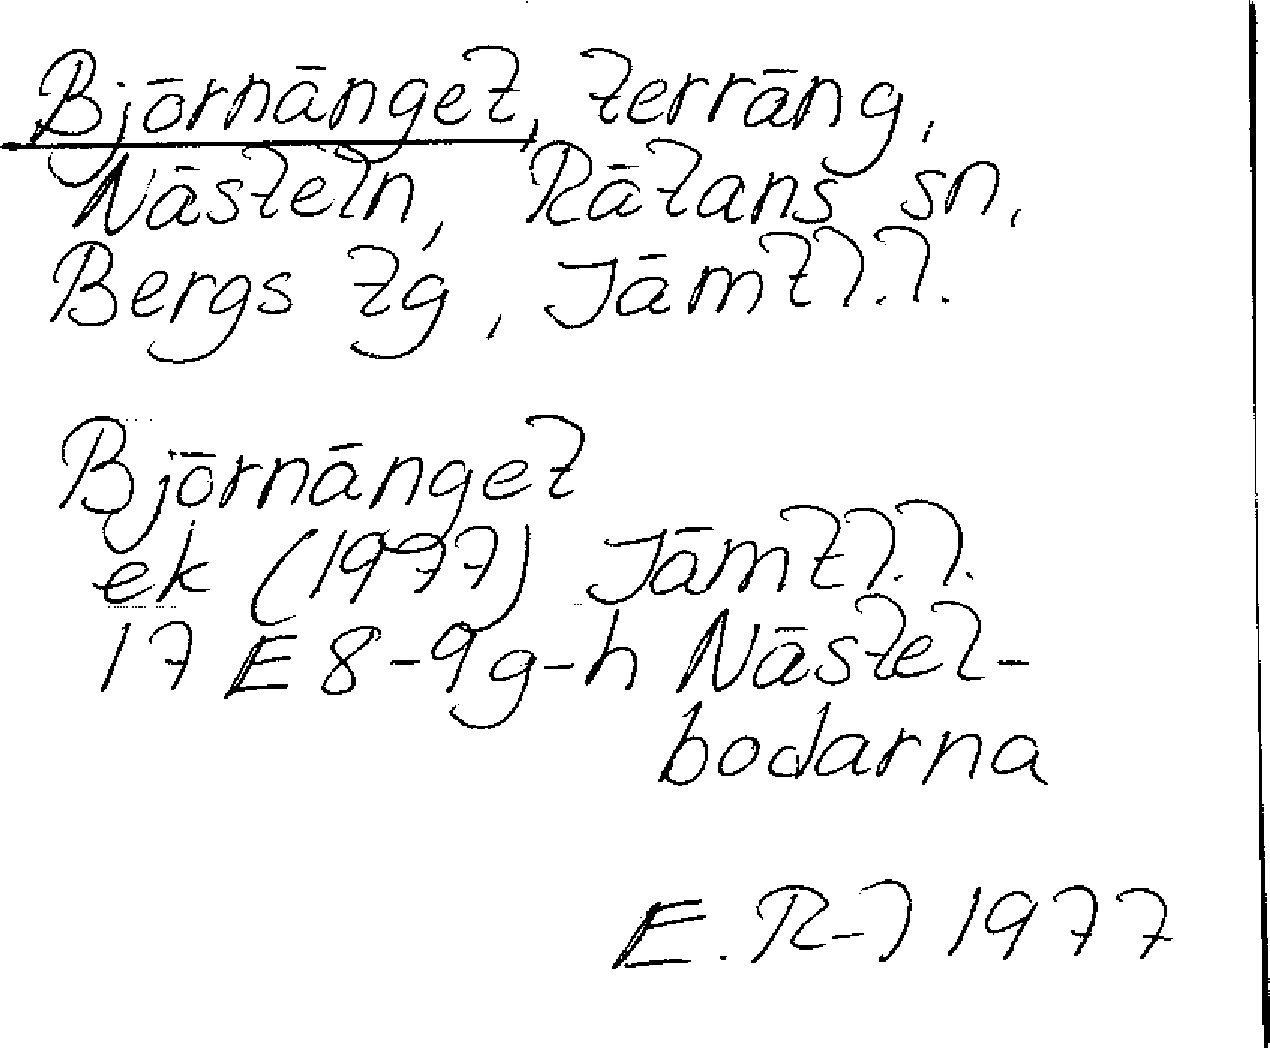 Björnänget, terräng,
Nästeln, Rätans sn,
Bergs tg, Jämtl.l.
Björnänget
ek (1977) Jämtl.l.
17 E 8-9g-h Nästel-
bodarna
E. R-l 1977